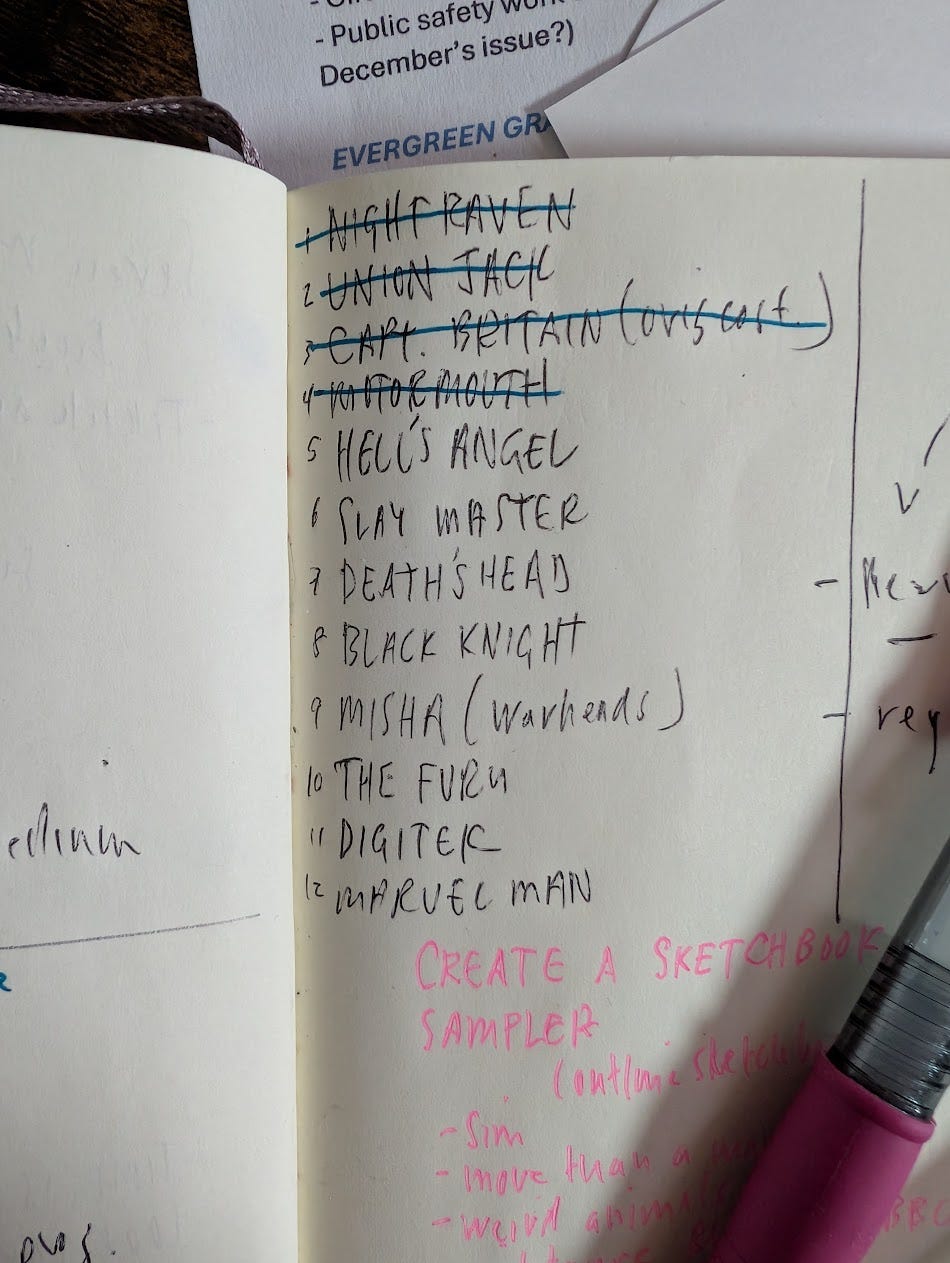 - Public safety
December's issue?)
EVERGREEN
1 NIGHT RAVEN
2 UNION JACK
3 CAPT. BRITAIN (orig cost.)
4 MOTORMOUTH
5 HELL'S ANGEL
6 SLAY MASTER
7 DEATH'S HEAD
8 BLACK KNIGHT
9 MISHA (Warheads)
10 THE FURY
11 DIGITEK
12 MARVEL MAN
CREATE A SKETCHBOOK
SAMPLER
- Sim
- more than a
- weird